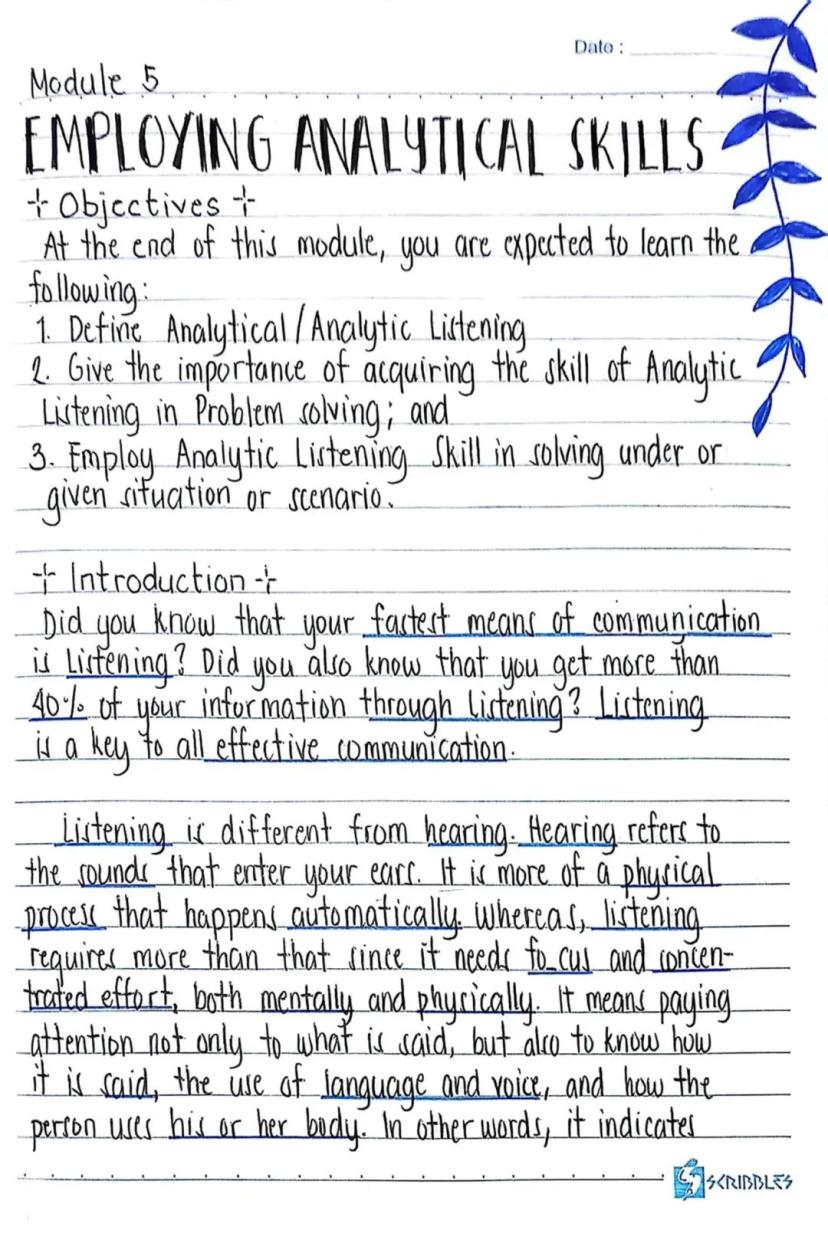 Date :
Module 5
EMPLOYING ANALYTICAL SKILLS
Objectives
At the end of this module, you are expected to learn the
following:
1. Define Analytical/Analytic Listening
2. Give the importance of acquiring the skill of Analytic
Listening in Problem solving; and
3. Employ Analytic Listening Skill in solving under or
given situation or scenario.
Introduction
Did you know that your fastest means of communication
is listening? Did you also know that you get more than
40% of your information through listening? Listening
is a key to all effective communication.
Listening is different from hearing. Hearing refers to
the sounds that enter your ears. It is more of a physical
process that happens automatically. Whereas, listening
requires more than that since it needs fo_cus and concen-
trated effort, both mentally and physically. It means paying
attention not only to what is said, but also to know how
it is said, the use of language and voice, and how the
person uses his or her body. In other words, it indicates
SCRIBBLES